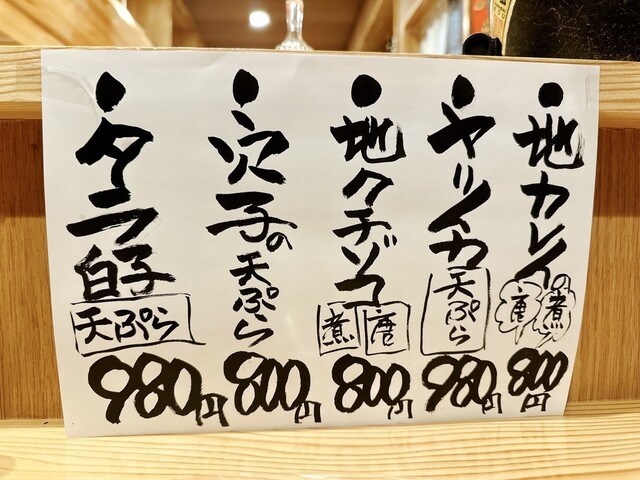 ・地カレイの
煮
唐
800円
・ヤリイカ
天ぷら
980円
・地クチゾコ
唐
煮
800円
・穴子の天ぷら
800円
・タラ白子
天ぷら
980円